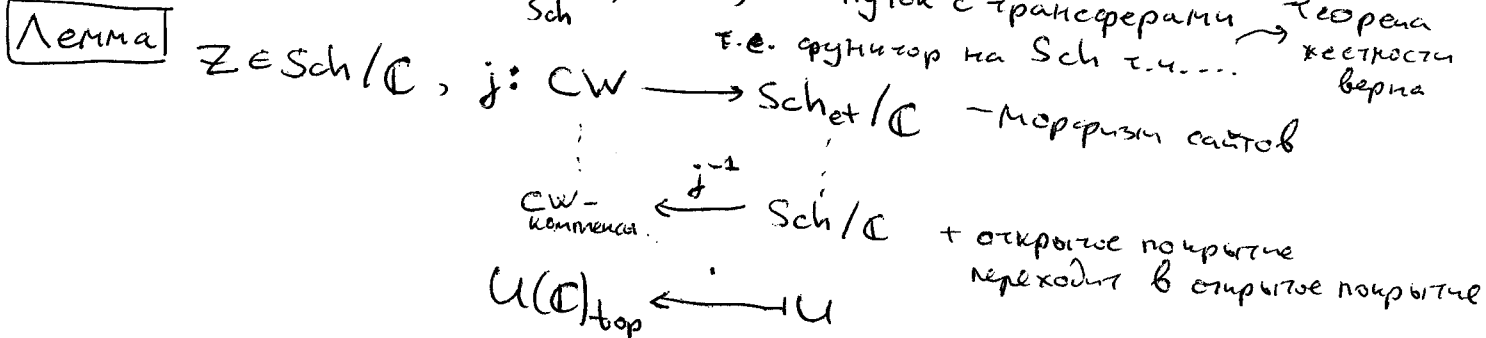 Sch пучок с трансферами Теорема
т.е. функтор на Sch т.ч.... → жесткости
верна
Лемма Z ∈ Sch/ℂ, j: CW ⟶ Sch_et/ℂ - морфизм сайтов
CW- комплексы. ⟵ j^{-1} Sch/ℂ + открытое покрытие
переходит в открытое покрытие
U(ℂ)_top ⟻ U